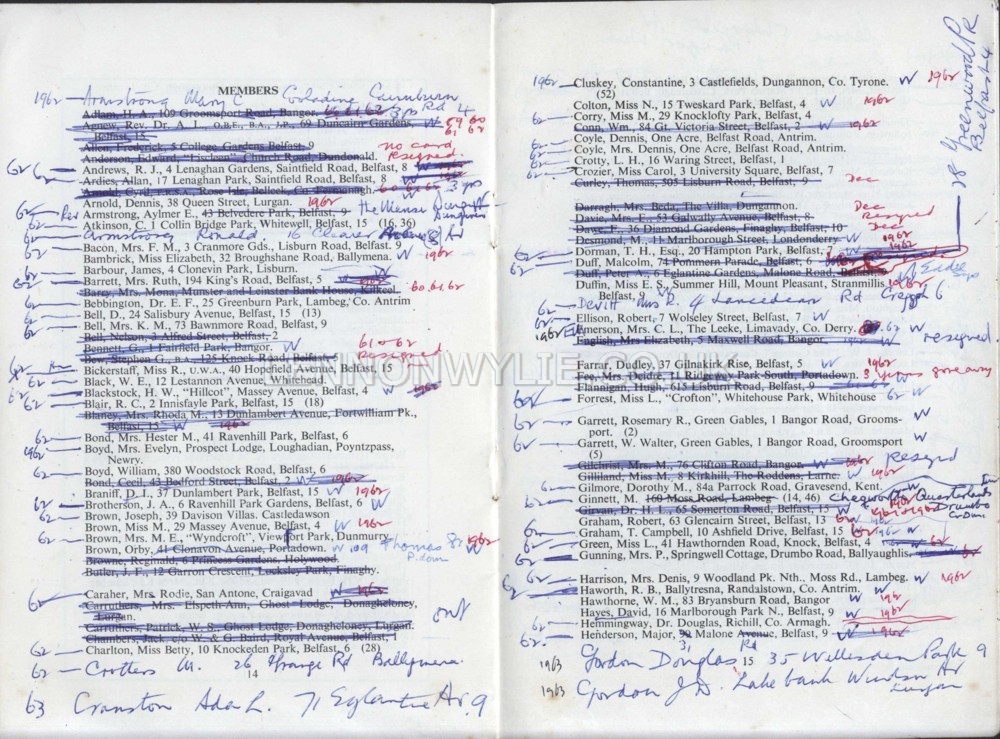 MEMBERS
1962 Armstrong Mary C
Adlam, H. A., 109 Groomsport Road, Bangor. 3 yrs Rd 4
Agnew, Rev. Dr. A. L., O.B.E., B.A., J.P., 69 Duncairn Gardens, W 59 60
Belfast, 15 61 62
Allen, Frederick, 5 College Gardens Belfast, 9 no card
Anderson, Edward, "Lisdoon" Church Road, Dundonald. resigned
62 Andrews, R. J., 4 Lenaghan Gardens, Saintfield Road, Belfast, 8 W 1962
62 Ardies, Allan, 17 Lenaghan Park, Saintfield Road, Belfast, 8 W 1962
60 61 62 3 yrs
Arnold, Dennis, 38 Queen Street, Lurgan. 1962
62 Rev Armstrong, Aylmer E., 43 Belvedere Park, Belfast, 9 The Manse
62 Atkinson, C. 1 Collin Bridge Park, Whitewell, Belfast, 15 (16, 36)
Armstrong Ronald 16
Bacon, Mrs. F. M., 3 Cranmore Gds., Lisburn Road, Belfast. 9
62 Bambrick, Miss Elizabeth, 32 Broughshane Road, Ballymena. W 1962
Barbour, James, 4 Clonevin Park, Lisburn.
62 Barrett, Mrs. Ruth, 194 King's Road, Belfast, 5 W
Barry, Mrs. Mona, Munster and Leinster Bank House, Kilkeel. 60, 61 62
62 Bebbington, Dr. E. F., 25 Greenburn Park, Lambeg, Co. Antrim
62 Bell, D., 24 Salisbury Avenue, Belfast, 15 (13)
62 Bell, Mrs. K. M., 73 Bawnmore Road, Belfast, 9
Bell, Nelson, 3 Alfred Street, Belfast, 2
Bennett, G., 1 Fairfield Park, Bangor. W 61 & 62
Stephen G., B.A., 125 Knock Road, Belfast, 5
Bickerstaff, Miss R., U.W.A., 40 Hopefield Avenue, Belfast, 15
62 Black, W. E., 12 Lestannon Avenue, Whitehead.
62 Blackstock, H. W., "Hillcot", Massey Avenue, Belfast, 4 W 1962
62 Blair, R. C., 2 Innisfayle Park, Belfast, 15 (18)
Blaney, Mrs. Rhoda M., 13 Dunlambert Avenue, Fortwilliam Pk.,
Belfast, 15 W 1962
62 Bond, Mrs. Hester M., 41 Ravenhill Park, Belfast, 6
1962 Boyd, Mrs. Evelyn, Prospect Lodge, Loughadian, Poyntzpass,
Newry.
62 Boyd, William, 380 Woodstock Road, Belfast, 6
Bond, Cecil, 43 Bedford Street, Belfast, 2 W 1962
62 Braniff, D. J., 37 Dunlambert Park, Belfast, 15 W 1962
62 Brotherson, J. A., 6 Ravenhill Park Gardens, Belfast, 6 W
62 Brown, Joseph, 39 Davison Villas, Castledawson
62 Brown, Miss M., 29 Massey Avenue, Belfast, 4 W 1962
62 Brown, Mrs. M. E., "Wyndcroft", Viewfort Park, Dunmurry.
62 Brown, Orby, 41 Clonavon Avenue, Portadown. W 109 Thomas St 1962
Browne, Reginald, 6 Princess Gardens, Holywood.
Butler, J. F., 12 Garron Crescent, Locksley Park, Finaghy.
62 Caraher, Mrs. Rodie, San Antone, Craigavad W 1962
Carruthers, Mrs. Elspeth-Ann, Ghost Lodge, Donagheloney,
Lurgan. out
Carruthers, Patrick, W. S., Ghost Lodge, Donagheloney, Lurgan.
Chambers, Jack, c/o W. & G. Baird, Royal Avenue, Belfast, 1
62 Charlton, Miss Betty, 10 Knockeden Park, Belfast, 6 (28)
62 M. 26 Grange Rd Ballymena.
14
63 Cranston Ada L. 71 Eglantine Av. 9
1962 Cluskey, Constantine, 3 Castlefields, Dungannon, Co. Tyrone. W 1962
(52)
Colton, Miss N., 15 Tweskard Park, Belfast, 4 W 1962
62 Corry, Miss M., 29 Knocklofty Park, Belfast, 4
Conn, Wm., 84 Gt. Victoria Street, Belfast, 2 W 1962
62 Coyle, Dennis, One Acre, Belfast Road, Antrim.
62 Coyle, Mrs. Dennis, One Acre, Belfast Road, Antrim.
62 Crotty, L. H., 16 Waring Street, Belfast, 1
62 Crozier, Miss Carol, 3 University Square, Belfast, 7
Curley, Thomas, 303 Lisburn Road, Belfast, 9 Dec
28 Greenwood Pk Belfast 4
Darragh, Mrs. Beda, The Villa, Dungannon. Dec
Davie, Mrs. F., 53 Galwally Avenue, Belfast, 8 Resigned
Dawe, F., 36 Diamond Gardens, Finaghy, Belfast, 10 Dec
Desmond, M., 11 Marlborough Street, Londonderry W 1962
62 Dorman, T. H., Esq., 20 Hampton Park, Belfast, W 1962
62 Duff, Malcolm, 74 Pommern Parade, Belfast, 6
Duff, Peter A., 6 Eglantine Gardens, Malone Road, Belfast
Duffin, Miss E. S., Summer Hill, Mount Pleasant, Stranmillis,
Belfast, 9
62 Devitt Mrs E. 4 Lancedean Rd 6
62 Ellison, Robert, 7 Wolseley Street, Belfast, 7 W
1962 Emerson, Mrs. C. L., The Leeke, Limavady, Co. Derry. 62 W
English, Mrs Elizabeth, 5 Maxwell Road, Bangor. resigned
62 Farrar, Dudley, 37 Gilnakirk Rise, Belfast, 5 W 1962
Fee, Mrs. Deidre, 11 Ridgeway Park South, Portadown. 3 years gone away
Flannigan, Hugh, 615 Lisburn Road, Belfast, 9
62 Forrest, Miss L., "Crofton", Whitehouse Park, Whitehouse W
62 Garrett, Rosemary R., Green Gables, 1 Bangor Road, Grooms-
port. (2) W
62 Garrett, W. Walter, Green Gables, 1 Bangor Road, Groomsport W
(5)
Gilchrist, Mrs. M., 76 Clifton Road, Bangor. W 62 Resigned
Gilliland, Miss M., 8 Kirkhill, The Roddens, Larne. W 1962
62 Gilmore, Dorothy M., 84a Parrock Road, Gravesend, Kent. W
62 Ginnett, M. 160 Moss Road, Lambeg (14, 46) Chequers Quarterlands Drumbo
Girvan, Dr. H. I., 65 Somerton Road, Belfast, 15 W
62 Graham, Robert, 63 Glencairn Street, Belfast, 13
62 Graham, T. Campbell, 10 Ashfield Drive, Belfast, 15 1962
62 Green, Miss L., 41 Hawthornden Road, Knock, Belfast, 4 W 62
62 Gunning, Mrs. P., Springwell Cottage, Drumbo Road, Ballyaughlis.
62 Harrison, Mrs. Denis, 9 Woodland Pk. Nth., Moss Rd., Lambeg. W 1962
62 Haworth, R. B., Ballytresna, Randalstown, Co. Antrim. W
Hawthorne, W. M., 83 Bryansburn Road, Bangor W 1962
62 Hayes, David, 16 Marlborough Park N., Belfast, 9 W 1962
62 Hemmingway, Dr. Douglas, Richill, Co. Armagh. W
62 Henderson, Major, 30 Malone Avenue, Belfast, 9 W 1962
31 Rd
1963 Gordon Douglas 35 Wellesley Park 9
15
1963 Gordon J D. Lake bank Windsor Av
Lurgan